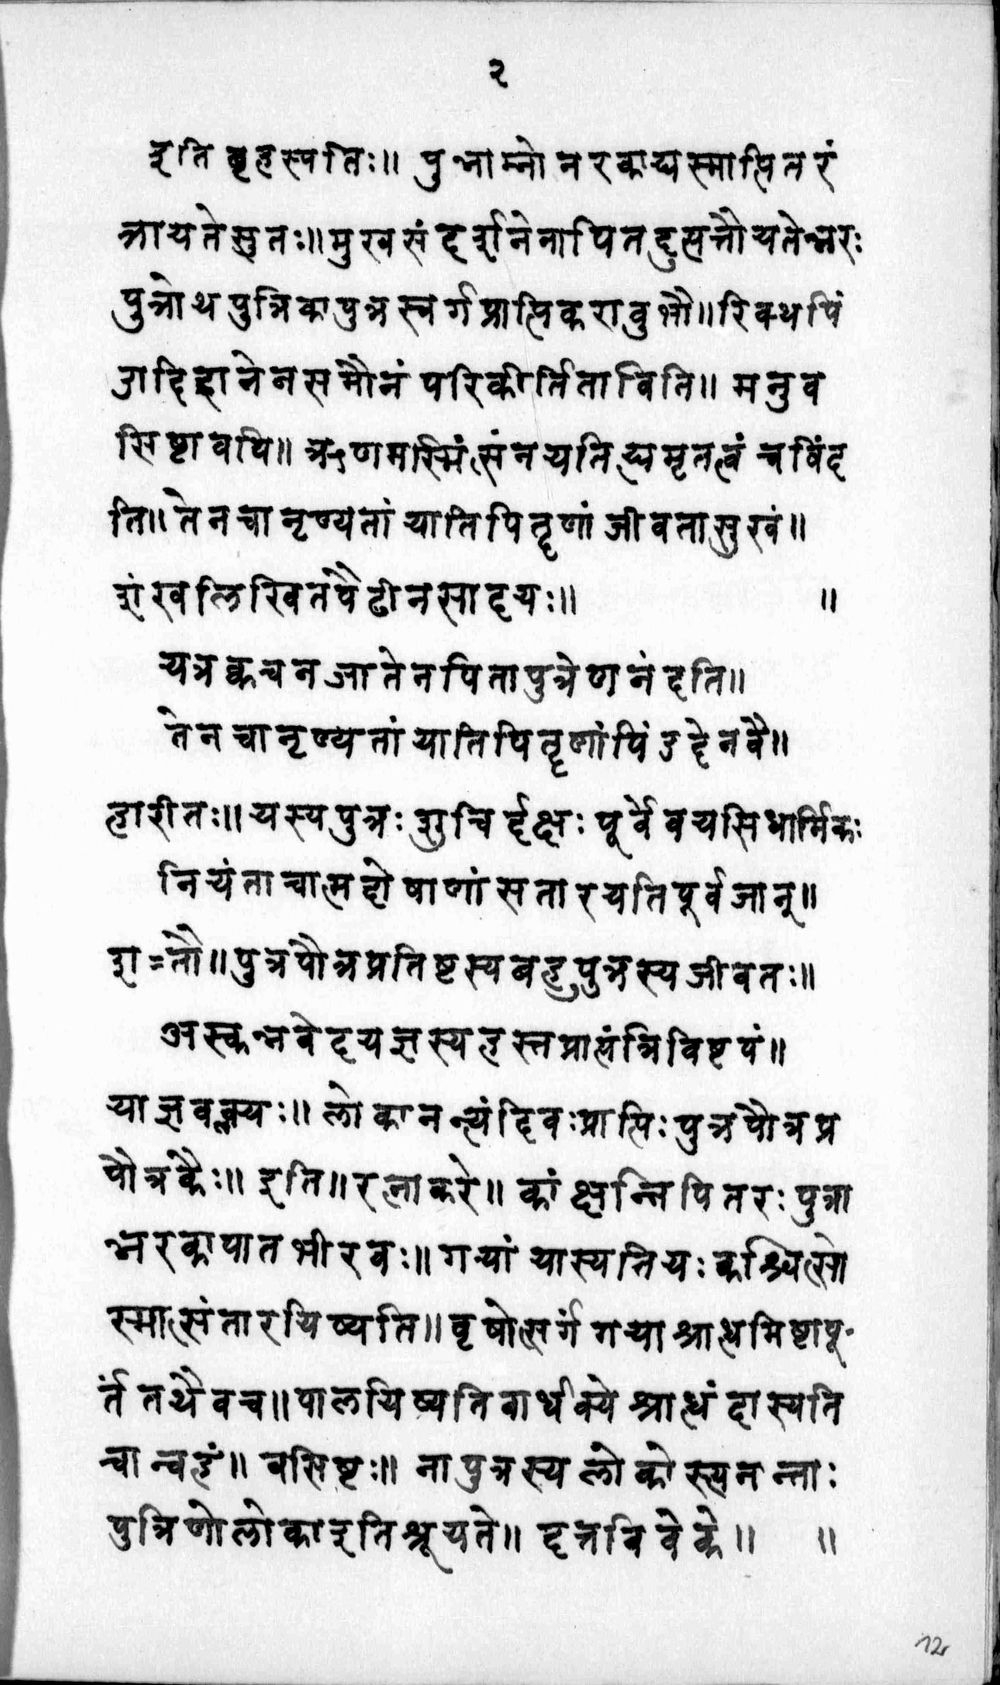 २
इति बृहस्पतिः॥ पुन्नाम्नो नरकाद्यस्मात्पितरं
त्रायते सुतः॥ मुखसंदर्शनेनापि तदुत्पत्तौ यतेन्नरः
पुत्रोथ पुत्रिकापुत्र स्वर्गप्राप्तिकरावुभौ॥ रिक्थपिं
डादिदानेन समौ नं परिकीर्तिताविति॥ मनुव
सिष्टावपि॥ ऋणमस्मिंत्संनयतित्यमृतत्वं च विंद
ति॥ तेन चानृण्यतां याति पितॄणां जीवता सुखं॥
शंखलिखितपैठीनसादयः॥ ॥
यत्र क्वचन जातेन पिता पुत्रेण नंदति॥
तेन चानृण्यतां याति पितॄणां पिंडदेन वै॥
हारीतः॥ यस्य पुत्रः शुचिर्दक्षः पूर्वे वयसि धार्मिकः
नियंता चात्मदोषाणां स तारयति पूर्वजान्॥
श=तौ॥ पुत्रपौत्रप्रतिष्टस्य बहुपुत्रस्य जीवतः॥
अस्कन्नवेदयज्ञस्य हस्तप्राप्तंत्रिविष्टपं॥
याज्ञवल्क्यः॥ लोकानन्त्यं दिवःप्राप्तिः पुत्रपौत्रप्र
पौत्रकैः॥ इति॥ रत्नाकरे॥ कांक्षन्ति पितरः पुत्रा
न्नरकापातभीरवः॥ गयां यास्यति यः कश्चित्सो
स्मात्संतारयिष्यति॥ वृषोत्सर्गं गयाश्राद्धमिष्टापू-
र्तं तथैव च॥ पालयिष्यति वार्धक्ये श्राद्धं दास्यति
चान्वहं॥ वसिष्टः॥ नापुत्रस्य लोकोस्त्यनन्ताः
पुत्रिणो लोका इति श्रूयते॥ दत्तविवेके॥ ॥
12